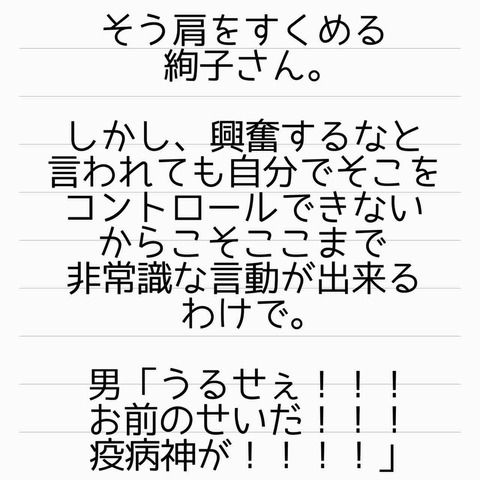 そう肩をすくめる
絢子さん。
しかし、興奮するなと
言われても自分でそこを
コントロールできない
からこそここまで
非常識な言動が出来る
わけで。
男「うるせぇ！！！
お前のせいだ！！！
疫病神が！！！！」